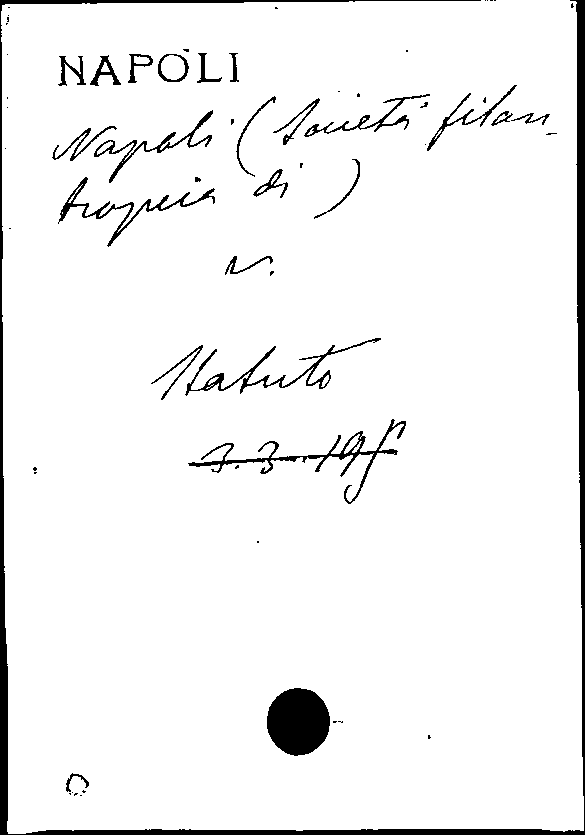 NAPOLI
Napoli (Società filan-
tropica di)
v.
Statuto
3.3.19